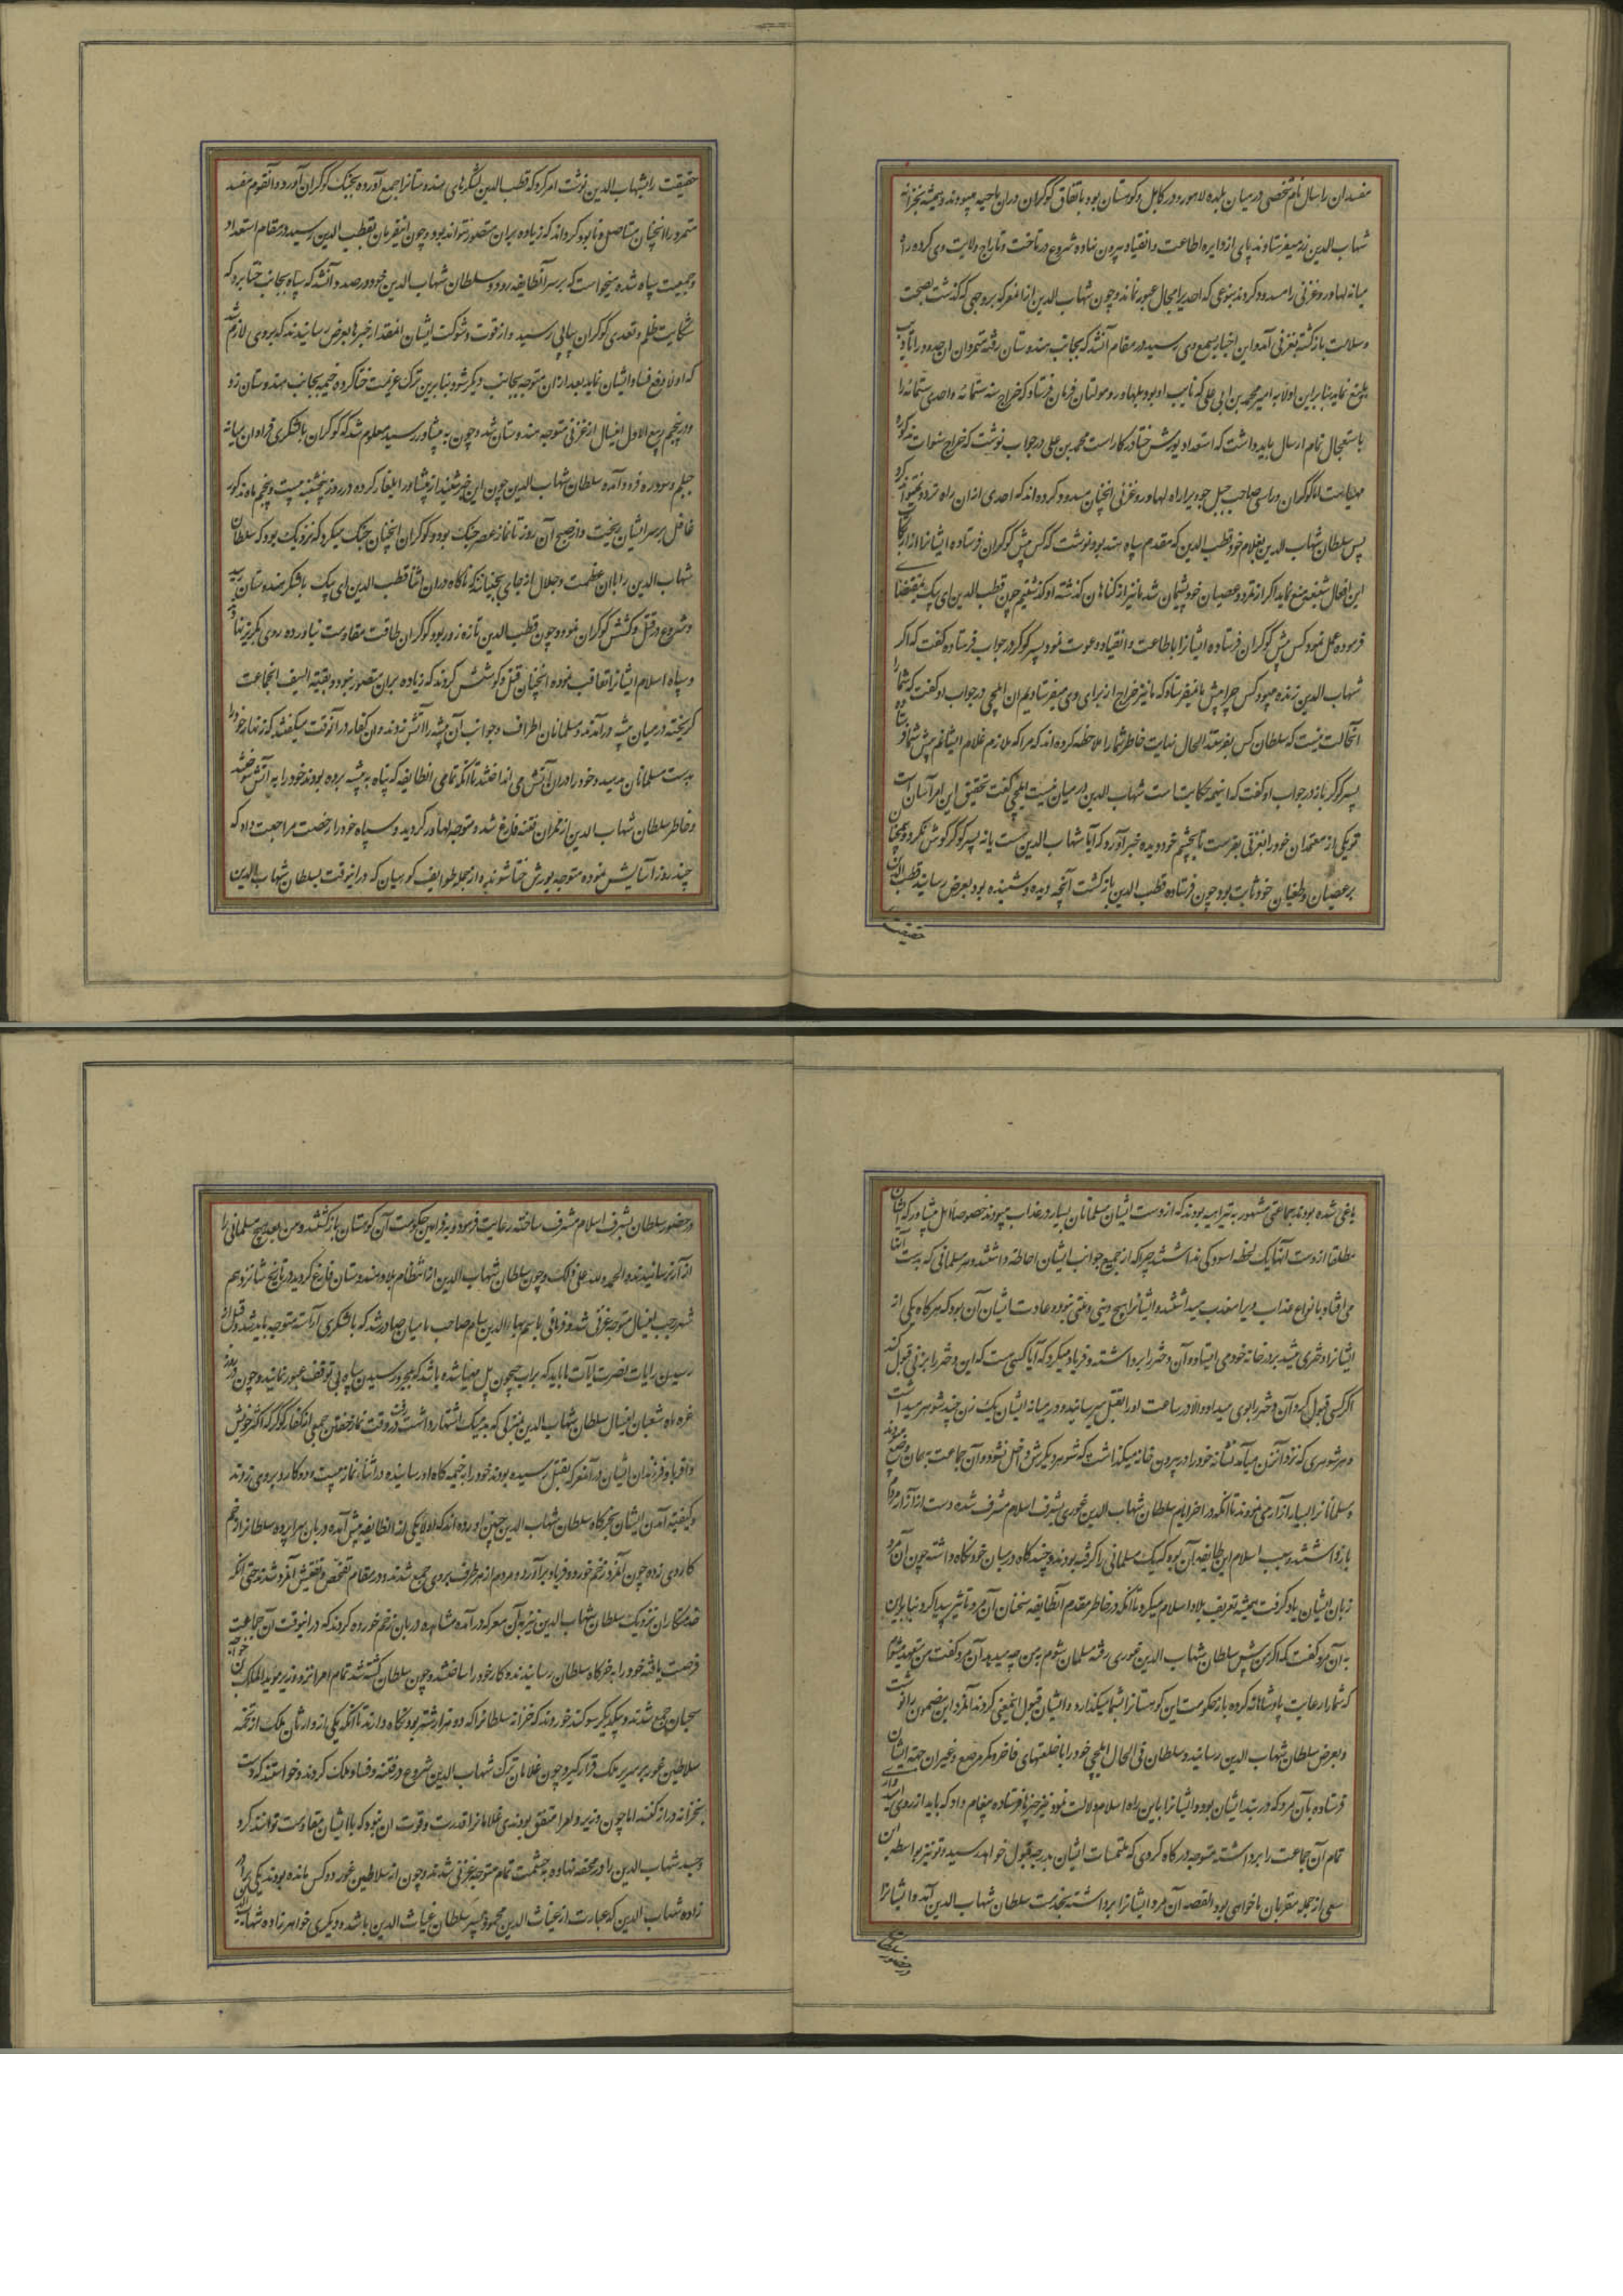 مفسدان را سال نام شخصی در میان بلده لاهور و در کابل و کوهستان بود باتفاق کوکران دران ناحیه میبودند و همیشه بخزانه
شهاب الدین زر میفرستادند پای از دایره اطاعت و انقیاد بیرون نهاده شروع در تاخت و تاراج ولایت وی کرده راه
میانه لهاور و غزنی را مسدود کردند بنوعی که احدیرا مجال عبور نماند و چون شهاب الدین ازان معرکه بروجهی که گذشت بصحت
و سلامت بازکشته بغزنی آمد و این اخبار بسمع وی رسید در مقام آن شد که بجانب هندوستان رفته متمردان ان حدود را تادیب
بلیغ نماید بنابرین اولا به امیر محمد بن ابی علی که نایب او بود بلهاور و مولتان فرمان فرستاد که خراج سنه ستمائه و احدی ستمائه را
باستعجال تمام ارسال باید داشت که استعداد یورش ختا در کار است محمد بن علی در جواب نوشت که خراج سنوات مذکوره
مهیاست اما کوکران و راسی صاحب جبل جودیرا راه لهاور و غزنی انچنان مسدود کرده اند که احدی ازان راه تردد نمیتواند کرد
پس سلطان شهاب الدین بغلام خود قطب الدین که مقدم سپاه هند بود نوشت که کس پیش کوکران فرستاده ایشانرا از ارتکاب
این افعال شنیعه منع نماید اگر از تمرد و عصیان خود پشیمان شد ما نیز از کناهان کذشته او کذشتیم چون قطب الدین ای بک بمقتضای
فرموده عمل نمود کس پیش کوکران فرستاده ایشانرا باطاعت و انقیاد دعوت نمود پسر کوکر در جواب فرستاده کفت که اگر
شهاب الدین زنده میبود کس چرا پیش ما نمیفرستاد که ما نیز خراج از برای وی میفرستادیم ان ایلچی در جواب او کفت که شما را
آنحالت نیست که سلطان کس بفرستد الحال نهایت خاطر شما را ملاحظه کرده اند که مرا که ملازم غلام ایشانم پیش شما فرستاده
پسر کوکر باز در جواب او کفت که اینهمه حکایت است شهاب الدین در میان نیست ایلچی کفت تحقیق این امر آسان است
تو یکی از معتمدان خود را بغزنی بفرست تا بچشم خود دیده خبر آورد که آیا شهاب الدین هست یا نه پسر کوکر کوش نکرد و همچنان
بر عصیان و طغیان خود ثابت بود چون فرستاده قطب الدین باز کشت آنچه دیده و شنیده بود بعرض رسانید قطب الدین
حقیقت
حقیقت را بشهاب الدین نوشت امر کرد که قطب الدین لشکرهای هندوستانرا جمع آورده بجنک کوکران آورد و آنقوم مفسد
متمرد را انچنان مستاصل و نابود کرداند که زیاده بران متصور نتواند بود و چون اینفرمان بقطب الدین رسید در مقام استعداد
و جمعیت سپاه شده میخواست که بر سر آنطایفه رود و سلطان شهاب الدین خود در صدد آنشد که سپاه بجانب ختا برد که
شکایت ظلم و تعدی کوکران پیاپی رسید و از قوت و شوکت ایشان انمقدار خبرها بعرض رسانیدند که بروی لازم شد
که اولا دفع فساد ایشان نماید بعد ازان متوجه بجانب دیگر شود بنابرین ترک عزیمت ختا کرده خیمه بجانب هندوستان زد
و در پنجم ربیع الاول اینسال از غزنی متوجه هندوستان شد و چون به پشاور رسید معلوم شد که کوکران با لشکری فراوان میانه
جیلم و سودره فرود آمده سلطان شهاب الدین چون این خبر شنید از پشاور ایلغار کرده در روز پنجشنبه بیست و پنجم ماه مذکور
غافل بر سر ایشان ریخت و از صبح آن روز تا نماز عصر جنک بود و کوکران انچنان جنک میکردند که نزدیک بود که سلطان
شهاب الدین را باان عظمت و جلال از جای بجنبانند که ناکاه دران اثنا قطب الدین ای بیک با لشکر هندوستان رسید
و شروع در قتل و کشش کوکران نمود و چون قطب الدین تازه زور بود کوکران طاقت مقاومت نیاورده روی بگریز نهادند
و سپاه اسلام ایشانرا تعاقب نموده انچنان قتل و کوشش کردند که زیاده بران متصور نبود و بقیة السیف انجماعت
کریخته در میان بیشه درآمدند و مسلمانان اطراف و جوانب آن بیشه را آتش زدند و ان کفار در آنوقت میکفتند که زنهار خود را
بدست مسلمانان مدهید و خود را دران آتش می انداختند تا آنکه تمامی انطایفه که پناه به بیشه برده بودند خود را به آتش سوختند
و خاطر سلطان شهاب الدین از ممران فتنه فارغ شد و متوجه لهاور کردید و سپاه خود را رخصت مراجعت داد که
چند روز آسایش نموده متوجه یورش ختا شوند و از جمله طوایف کوهیان که در انوقت بسلطان شهاب الدین
یاغی شده بودند جماعتی مشهور به تیراهیه بودند که از دست ایشان مسلمانان بسیار در عذاب میبودند خصوصا اهل پشاور که ایشان
مطلقا از دست آنها یک لحظه اسودکی نداشتند چرا که از جمیع جوانب ایشان احاطه داشتند و هر مسلمانی که بدست آنها
می افتاد بانواع عذاب ویرا معذب میداشتند و ایشانرا هیچ دینی و ملتی نبود و عادت ایشان آن بود که هرکاه یکی از
ایشانرا دختری میشد بر در خانه خود می ایستاده آن دختر را برداشته و فریاد میکرد که آیا کسی هست که این دختر را بزنی قبول کند
اگر کسی قبول کرد آن دختر را بوی میداد و الا در ساعت اورا بقتل میرسانید و در میانه ایشان یک زن چند شوهر میداشت
و هر شوهری که نزد آنزن میآمد نشانه خود را در بیرون خانه میگذاشت که شوهر دیگرش داخل نشود و آن جماعت بهمان وضع میبودند
و مسلمانانرا بسیار آزار می نمودند تا آنکه در اخر ایام سلطان شهاب الدین غوری بشرف اسلام مشرف شده دست از آزار مردم
باز داشتند و سبب اسلام این طایفه آن بود که یک مسلمانی را گرفته بودند و چند کاه در میان خود نکاه داشته چون آن مرد
زبان ایشان یاد گرفت همیشه تعریف بلاد اسلام میکرد تا آنکه در خاطر مقدم آنطایفه سخنان آن مرد تاثیر پیدا کرد بنابراین
به آن مرد کفت که اگر من پیش سلطان شهاب الدین غوری رفته مسلمان شوم بمن چه میدهد آن مرد کفت من متعهد میشوم
که شما را رعایت پادشاهانه کرده باز حکومت این کوهستانرا بشما میگذارد و ایشان قبول اینمعنی کردند آنمرد این مضمون را نوشت
و بعرض سلطان شهاب الدین رسانید و سلطان فی الحال ایلچی خود را با خلعتهای فاخر و کمر مرصع و غیران جهة ایشان
فرستاده بآن مرد که در بند ایشان بود و ایشانرا باین راه اسلام دلالت نمود نیز چیزها فرستاده پیغام داد که باید از روی امیدواری
تمام آن جماعت را برداشته متوجه درکاه کردی که ملتمسات ایشان بدرجه قبول خواهد رسید و تو نیز بواسطه این
سعی از جمله مقربان ما خواهی بود القصه آن مرد ایشانرا برداشته بخدمت سلطان شهاب الدین آمد و ایشانرا
در حضور سلطان
در حضور سلطان بشرف اسلام مشرف ساخته رعایت فرمود و بفرامین حکومت آن کوهستان باز کشتند و من بعد هیچ مسلمانی را
از آزار نرسانیدند و الحمد لله علی ذلک و چون سلطان شهاب الدین از انتظام بلاد هندوستان فارغ کردید در تاریخ شانزدهم
شهر رجب اینسال متوجه غزنی شد و فرمانی باسم بهاء الدین سام صاحب بامیان صادر شد که با لشکری آراسته متوجه باید شد و قبل از
رسیدن رایات نصرت آیات ما باید که براب جیحون پل مهیا شده باشد که بمجرد رسیدن سپاه بی توقف عبور نمایند و چون در روز
غره ماه شعبان اینسال سلطان شهاب الدین بمنزلی که به دمیک اشتهار داشت رفت در وقت نماز خفتن جمعی از کفار کوکر که اکثر خویش
و اقربا و فرزندان ایشان در آنمعرکه بقتل رسیده بودند خود را به خیمه کاه او رسانیده در اثناء نماز بیست و دو کارد بروی زدند
و کیفیت آمدن ایشان بخرکاه سلطان شهاب الدین چنین آورده اند که اولا یکی از انطایفه پیش آمده دربان سراپرده سلطانرا زخم
کاردی زده چون آنمرد زخم خورده و فریاد برآورد و مردم از هر طرف بروی جمع شدند و در مقام تفحص و تفتیش آنمرد شدند حتی آنکه
خدمتکاران نزدیک سلطان شهاب الدین نیز به آن معرکه درآمده مشاهده دربان زخم خورده کردند که در انوقت آن جماعت
فرصت یافته خود را به خرکاه سلطان رسانیدند و کار خود را ساختند و چون سلطان کشته شد تمام امرا نزد وزیر موید الملک بن خواجه
سجیان جمع شدند و بیکدیگر سوکند خوردند که خزانه سلطانرا که دو هزار شتر بود نکاه دارند تا آنکه یکی از وارثان ملک از تخمه
سلاطین غور بر سریر ملک قرار گیرد و چون غلامان ترک شهاب الدین شروع در فتنه و فساد ملک کردند و خواستند که دست
بخزانه دراز کنند اما چون وزیر و امرا متفق بودند غلامانرا قدرت و قوت ان نبود که باایشان مقاومت توانند کرد
و جسد شهاب الدین را در محفه نهاده بحشمت تمام متوجه غزنی شدند و چون از سلاطین غور دو کس مانده بودند یکی برادر
زاده شهاب الدین که عبارت از غیاث الدین محمود پسر سلطان غیاث الدین باشد و دیگری خواهر زاده شهاب الدین